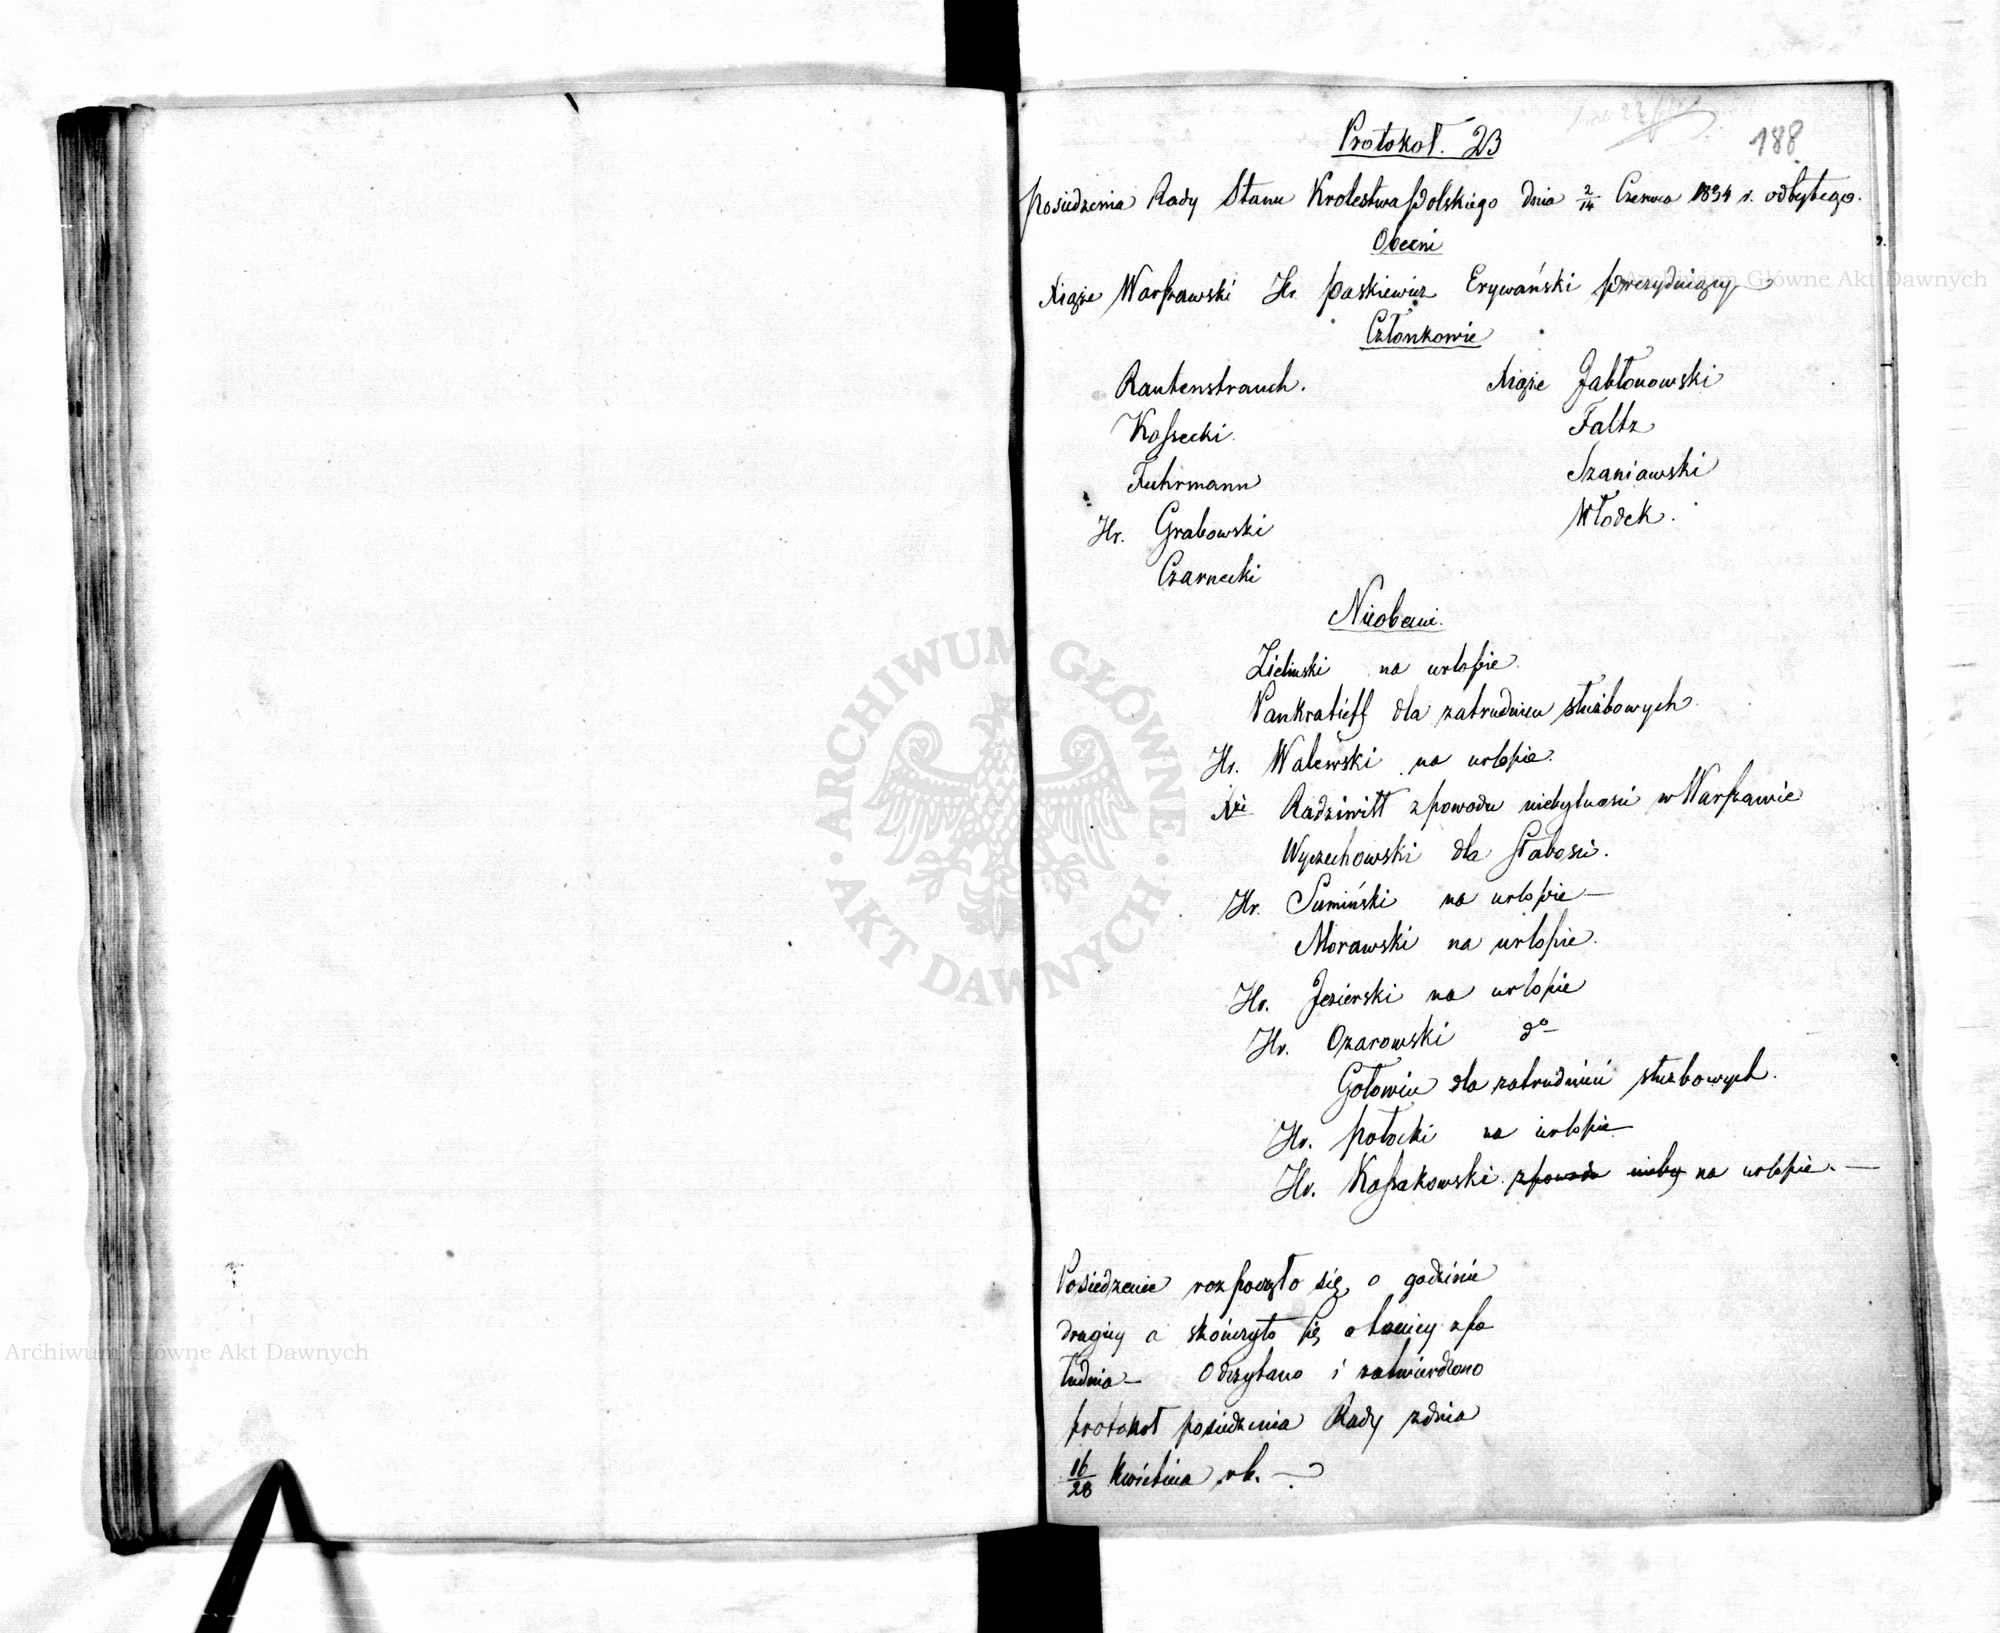 Protokoł. 23
188
Posiedzenia Rady Stanu Krolestwa Polskiego dnia 2/14 Czerwca 1834 r. odbytego.
Obecni
Xiąże Warszawski Hr. Paskiewicz Erywański prezydujący
Członkowie
Rautenstrauch.
Xiąże Jabłonowski
Kossecki.
Faltz
Fuhrmann
Szaniawski
Hr. Grabowski
Włodek.
Czarnecki
Nieobecni.
Zieliński na urlopie.
Pankratieff dla zatrudnień służbowych.
Hr. Walewski na urlopie.
Xże Radziwiłł z powodu niebytności w Warszawie
Wyczechowski dla słabości.
Hr. Sumiński na urlopie –
Morawski na urlopie.
Hr. Jezierski na urlopie
Hr. Ozarowski do
Gołowin dla zatrudnień służbowych.
Hr. Potocki na urlopie
Hr. Kossakowski z powodu nieby na urlopie. –
Posiedzenie rozpoczęło się o godzinie
drugiey a skończyło się o trzeciey z po
łudnia – Odczytano i zatwierdzono
protokoł posiedzenia Rady z dnia
16/28 Kwietnia rb. –
ARCHIWUM GŁÓWNE AKT DAWNYCH
Archiwum Główne Akt Dawnych
Archiwum Główne Akt Dawnych